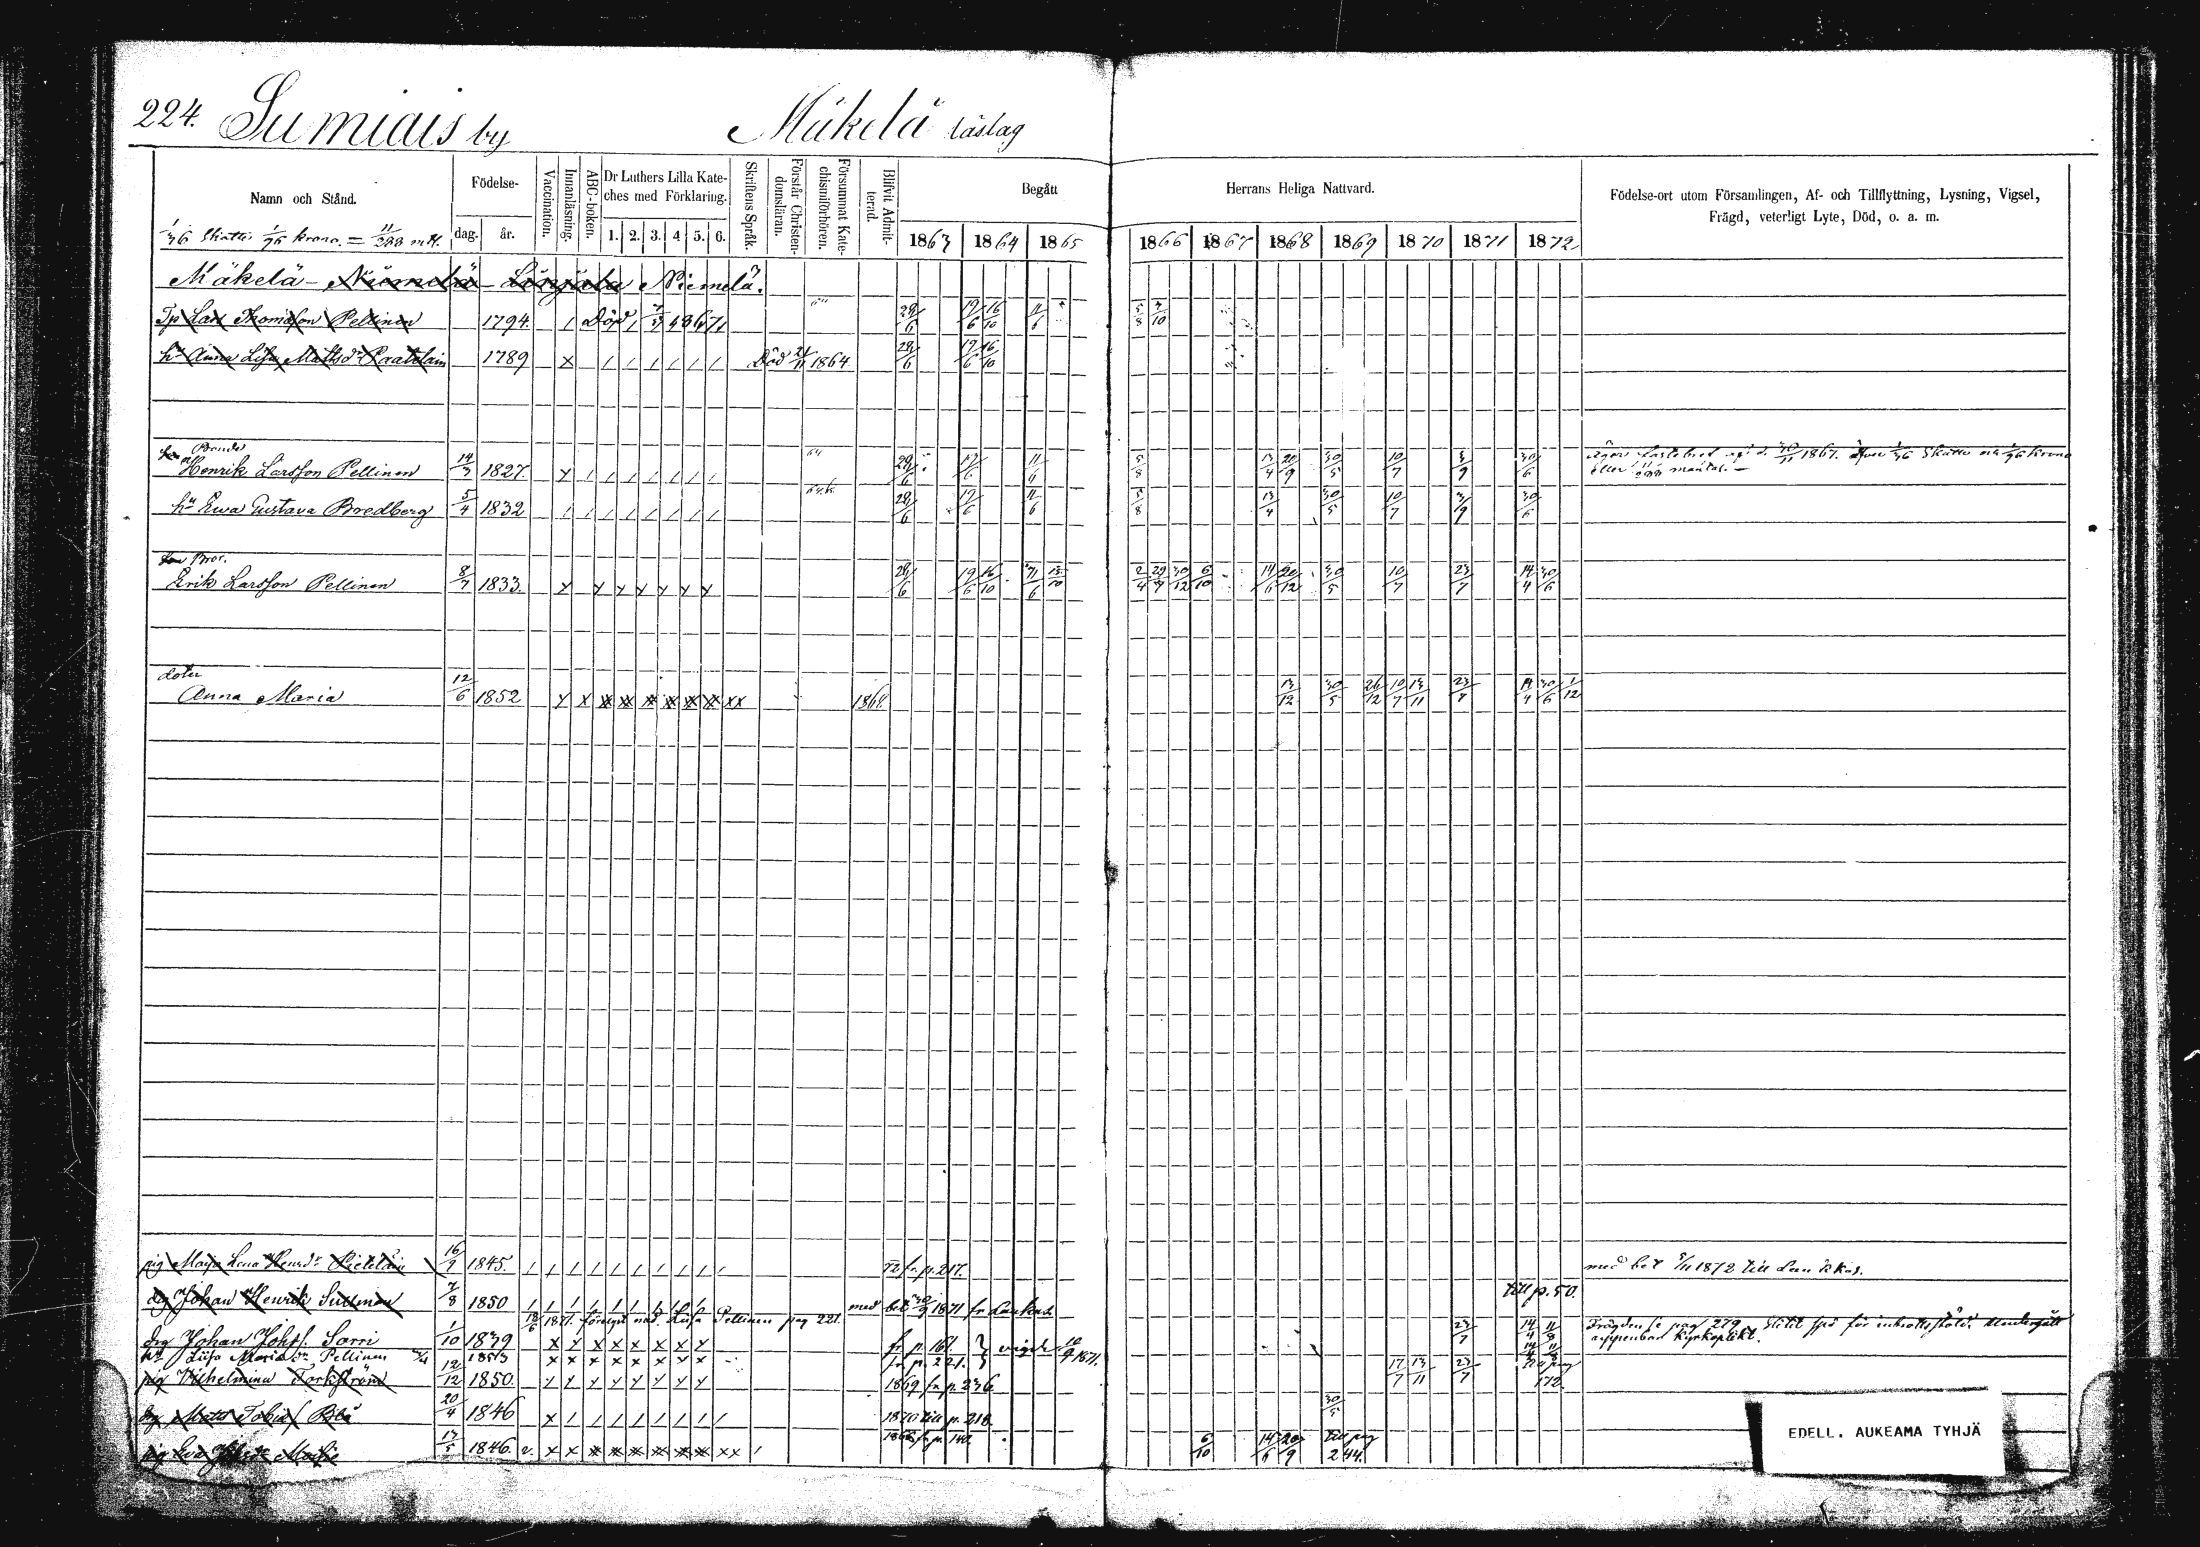 224. Sumiais by Mäkelä läslag
Namn och Stånd.
Födelse-
dag. år.
Vaccination.
Innanläsning.
ABC-boken.
Dr Luthers Lilla Kate-
ches med Förklaring.
1. 2. 3. 4 5. 6.
Skriftens Språk.
Förstår Christen-
domsläran.
Försummat Kate-
chismiförhören.
Blifvit Admit-
terad.
Begått Herrans Heliga Nattvard.
1863 1864 1865 1866 1867 1868 1869 1870 1871 1872
Födelse-ort utom Församlingen, Af- och Tillflyttning, Lysning, Vigsel,
Frägd, veterligt Lyte, Död, o. a. m.
1/36 Skatte 1/96 krono = 11/288 mtl.
Mäkelä - Niemelä - Niemelä.
Lars Thomasson Pellinen 1794. Död 29/6 19/6 16/10 11/6 5/8 7/10
hu Anna Lisa Mattsdr 1789 Död 21/11 1864 29/6 19/6 16/10
Bonde
Henrik Larsson Pellinen 14/3 1827. 64 29/6 19/6 11/6 5/8 13/4 20/9 30/5 10/7 3/9 30/6 1867. 1/36 Skatte och 1/96 krono
eller 11/288 mantal. -
hu Ewa Gustava Bredberg 5/4 1832 29/6 19/6 11/6 5/8 13/4 30/5 10/7 3/9 30/6
Bror.
Erik Larsson Pellinen 8/7 1833. 29/6 19/6 16/10 11/6 15/10 2/4 29/7 30/12 6/10 14/6 20/12 30/5 10/7 23/7 14/4 30/6
doter
Anna Maria 12/6 1852 1868. 13/12 30/5 26/12 10/7 13/11 23/7 14/4 30/6 1/12
pig Maja Lena Henrdr 16/9 1845. 72 fr. p. 217. med bet 5/11 1872 till Laukkas.
drg Johan Henrik Sullman 7/8 1850 med bet 30/9 1871 fr Laukas till p. 50.
1871. förlofvat med Lisa Pellinen pag 221.
drg Johan Johss. Sarri 1/10 1839 fr p. 161. } vigde 10/9 1871. 23/7 14/4 11/8 Frägden se pag 279
uppenbar kyrkoplikt.
hu Lisa Maria Pellinen 1853 fr p. 221. }
pig Vilhelmina Forkström 12/12 1850. 1869 fr p. 236 17/7 13/11 23/7 till pag
172.
drg Matts Tobias 20/4 1846 1870 till p. 218. 30/5
pig Eva 17/5 1846. v. fr p. 142. 6/10 14/6 20/9 till pag
244.
EDELL. AUKEAMA TYHJÄ